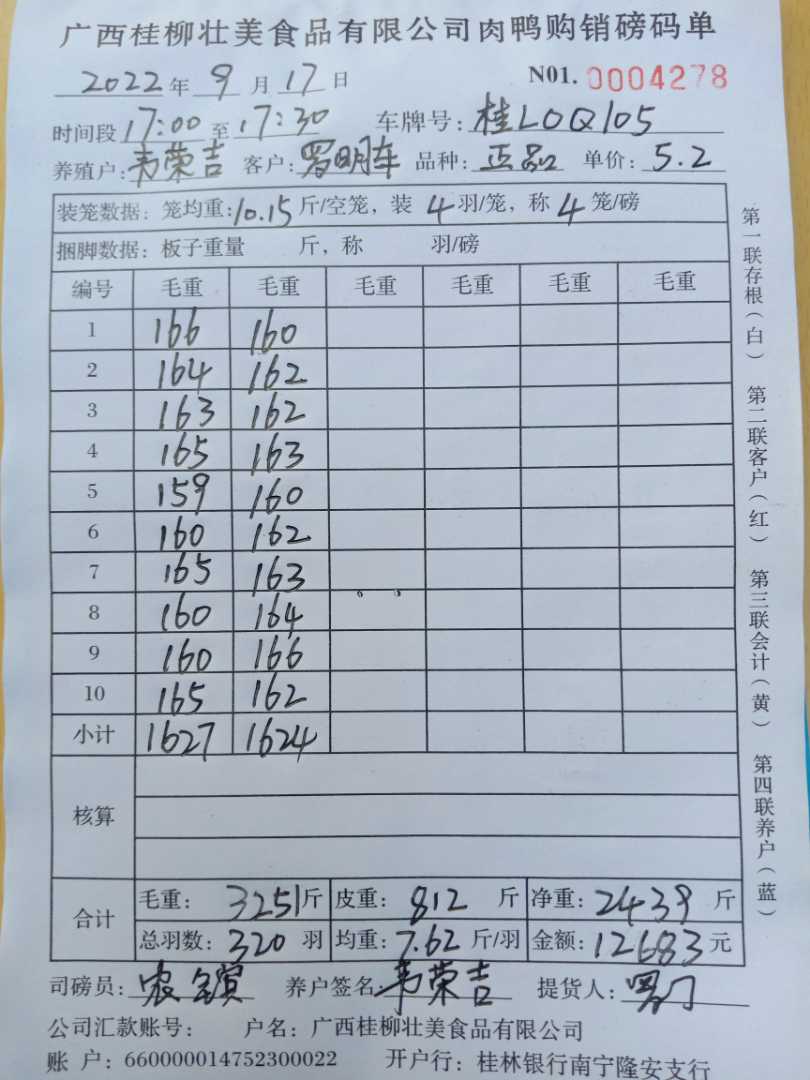 广西桂柳壮美食品有限公司肉鸭购销磅码单
2022年 9 月 17 日 N01. 0004278
时间段 17:00 至 17:30 车牌号: 桂L0Q105
养殖户: 韦荣吉 客户: 罗明车 品种: 正品 单价: 5.2
装笼数据: 笼均重: 10.15 斤/空笼, 装 4 羽/笼, 称 4 笼/磅
捆脚数据: 板子重量 斤, 称 羽/磅
编号 毛重 毛重 毛重 毛重 毛重 毛重
1 166 160
2 164 162
3 163 162
4 165 163
5 159 160
6 160 162
7 165 163
8 160 164
9 160 166
10 165 162
小计 1627 1624
核算
合计
毛重: 3251 斤 皮重: 812 斤 净重: 2439 斤
总羽数: 320 羽 均重: 7.62 斤/羽 金额: 12683 元
司磅员: 农 养户签名 韦荣吉 提货人: 罗
公司汇款账号: 户名: 广西桂柳壮美食品有限公司
账 户: 660000014752300022 开户行: 桂林银行南宁隆安支行
第一联存根(白) 第二联客户(红) 第三联会计(黄) 第四联养户(蓝)